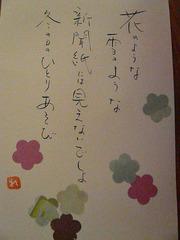 花のような
雪のような
新聞紙には見えないでしょ
冬の日のひとりあそび